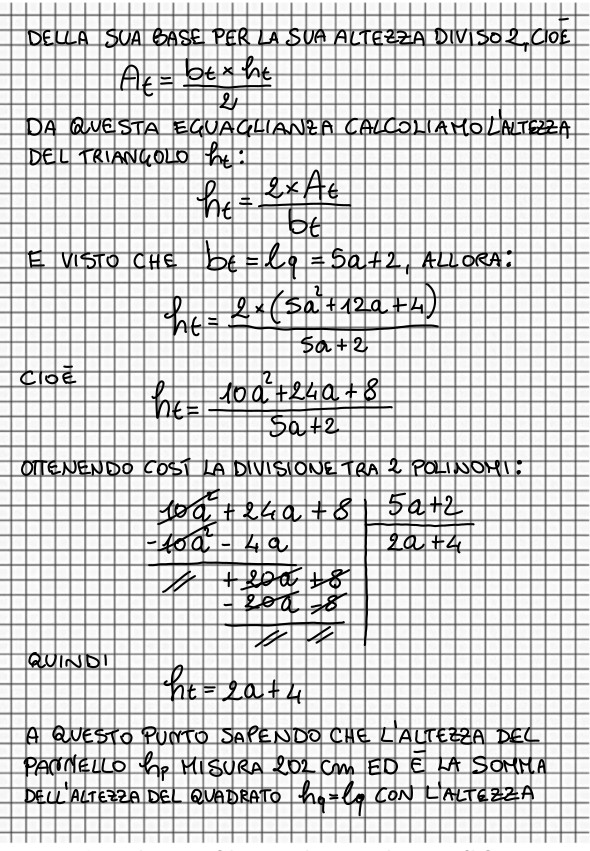 DELLA SUA BASE PER LA SUA ALTEZZA DIVISO 2, CIOÈ
At = bt × ht / 2
DA QUESTA EGUAGLIANZA CALCOLIAMO L'ALTEZZA
DEL TRIANGOLO ht:
ht = 2×At / bt
E VISTO CHE bt = lq = 5a+2, ALLORA:
ht = 2×(5a²+12a+4) / 5a+2
CIOÈ
ht = 10a²+24a+8 / 5a+2
OTTENENDO COSÌ LA DIVISIONE TRA 2 POLINOMI:
10a² + 24a + 8 | 5a+2
-10a² - 4a | 2a+4
// +20a +8
- 20a -8
// //
QUINDI
ht = 2a+4
A QUESTO PUNTO SAPENDO CHE L'ALTEZZA DEL
PANNELLO hp MISURA 202 cm ED È LA SOMMA
DELL'ALTEZZA DEL QUADRATO hq=lq CON L'ALTEZZA